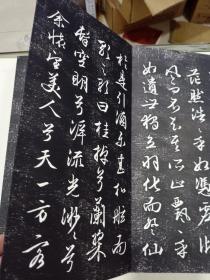 茫然浩浩乎如馮虛御
風而不知其所止飄飄乎
如遺世獨立羽化而登仙
於是飲酒樂甚扣舷而
歌之歌曰桂棹兮蘭槳
擊空明兮泝流光渺渺兮
余懷望美人兮天一方客